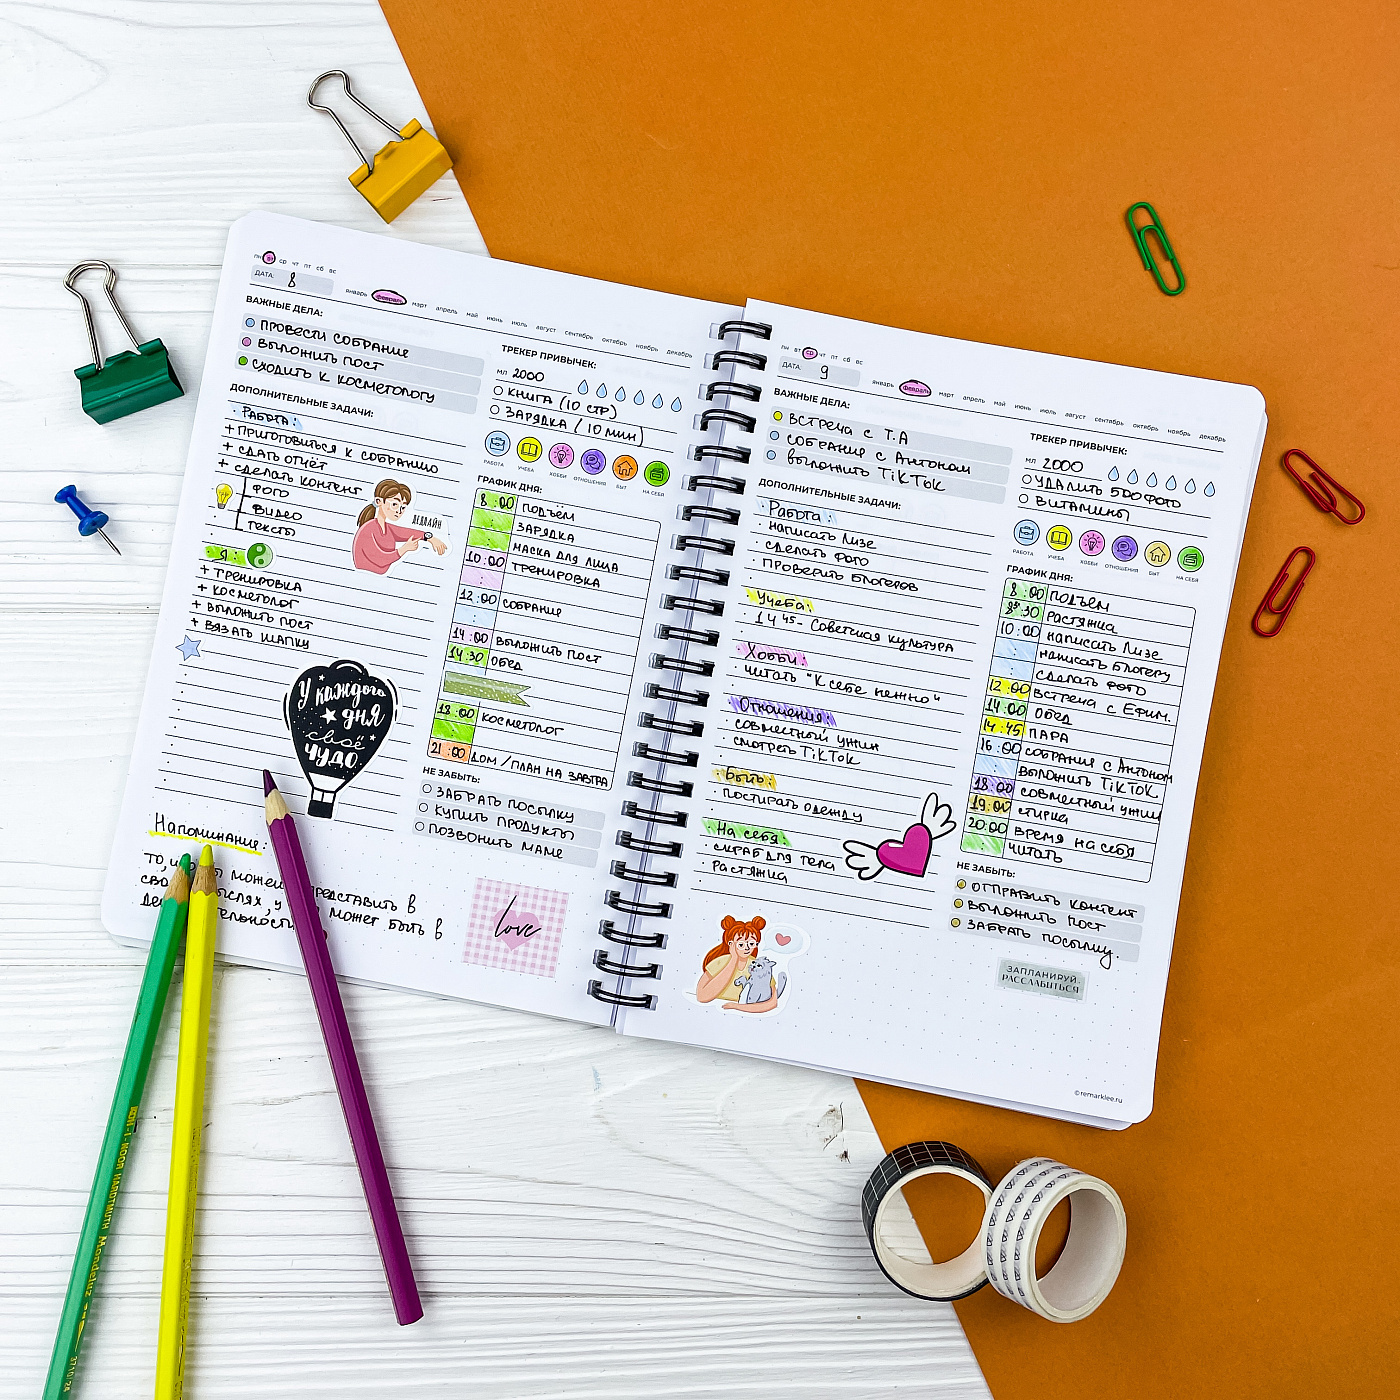 пн вт ср чт пт сб вс
ДАТА: 8
январь февраль март апрель май июнь июль август сентябрь октябрь ноябрь декабрь
ВАЖНЫЕ ДЕЛА:
ПРОВЕСТИ СОБРАНИЕ
ВЫЛОЖИТЬ ПОСТ
СХОДИТЬ К КОСМЕТОЛОГУ
ДОПОЛНИТЕЛЬНЫЕ ЗАДАЧИ:
· РАБОТА:
+ ПРИГОТОВИТЬСЯ К СОБРАНИЮ
+ СДАТЬ ОТЧЁТ
+ СДЕЛАТЬ КОНТЕНТ
ФОТО
ВИДЕО
ТЕКСТЫ
ДЕДЛАЙН
Я:
+ ТРЕНИРОВКА
+ КОСМЕТОЛОГ
+ ВЫЛОЖИТЬ ПОСТ
+ ВЯЗАТЬ ШАПКУ
У каждого
дня
своё
ЧУДО
Напоминание:
можешь представить в
может быть в
ТРЕКЕР ПРИВЫЧЕК:
МЛ 2000
КНИГА (10 СТР)
ЗАРЯДКА (10 МИН)
РАБОТА УЧЕБА ХОББИ ОТНОШЕНИЯ БЫТ НА СЕБЯ
ГРАФИК ДНЯ:
8:00 ПОДЪЁМ
: ЗАРЯДКА
: МАСКА ДЛЯ ЛИЦА
10:00 ТРЕНИРОВКА
:
12:00 СОБРАНИЕ
:
14:00 ВЫЛОЖИТЬ ПОСТ
14:30 ОБЕД
18:00 КОСМЕТОЛОГ
:
21:00 ДОМ / ПЛАН НА ЗАВТРА
НЕ ЗАБЫТЬ:
ЗАБРАТЬ ПОСЫЛКУ
КУПИТЬ ПРОДУКТЫ
ПОЗВОНИТЬ МАМЕ
love
пн вт ср чт пт сб вс
ДАТА: 9
январь февраль март апрель май июнь июль август сентябрь октябрь ноябрь декабрь
ВАЖНЫЕ ДЕЛА:
ВСТРЕЧА С Т.А
СОБРАНИЕ С АНТОНОМ
ВЫЛОЖИТЬ TikTok
ДОПОЛНИТЕЛЬНЫЕ ЗАДАЧИ:
Работа:
· НАПИСАТЬ ЛИЗЕ
· СДЕЛАТЬ ФОТО
· ПРОВЕРИТЬ БЛОГЕРОВ
Учеба:
· 14 45 - Советская культура
Хобби:
· ЧИТАТЬ "К себе нежно"
Отношения:
· СОВМЕСТНЫЙ УЖИН
· СМОТРЕТЬ TikTok
Быть:
· ПОСТИРАТЬ ОДЕЖДУ
На себя:
· СКРАБ ДЛЯ ТЕЛА
· РАСТЯЖКА
ТРЕКЕР ПРИВЫЧЕК:
МЛ 2000
УДАЛИТЬ 500 ФОТО
ВИТАМИНЫ
РАБОТА УЧЕБА ХОББИ ОТНОШЕНИЯ БЫТ НА СЕБЯ
ГРАФИК ДНЯ:
8:00 ПОДЪЁМ
8:30 РАСТЯЖКА
10:00 НАПИСАТЬ ЛИЗЕ
: НАПИСАТЬ БЛОГЕРУ
: СДЕЛАТЬ ФОТО
12:00 ВСТРЕЧА С ЕФИМ.
14:00 ОБЕД
14:45 ПАРА
16:00 СОБРАНИЕ С АНТОНОМ
: ВЫЛОЖИТЬ TikTok
18:00 СОВМЕСТНЫЙ УЖИН
19:00 СТИРКА
20:00 ВРЕМЯ НА СЕБЯ
: ЧИТАТЬ
НЕ ЗАБЫТЬ:
ОТПРАВИТЬ КОНТЕНТ
ВЫЛОЖИТЬ ПОСТ
ЗАБРАТЬ ПОСЫЛКУ.
ЗАПЛАНИРУЙ
РАССЛАБИТЬСЯ
©remarklee.ru
KOH-I-NOOR HARDTMUTH Mondeluz